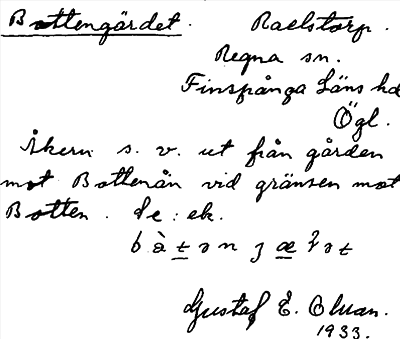 Bottengärdet. Raelstorp.
Regna sn.
Finspånga läns hd
Ögl.
Åkern s. v. ut från gården
mot Bottenån vid gränsen mot
Botten. Se: ek.
Gustaf E. Olsson.
1933.